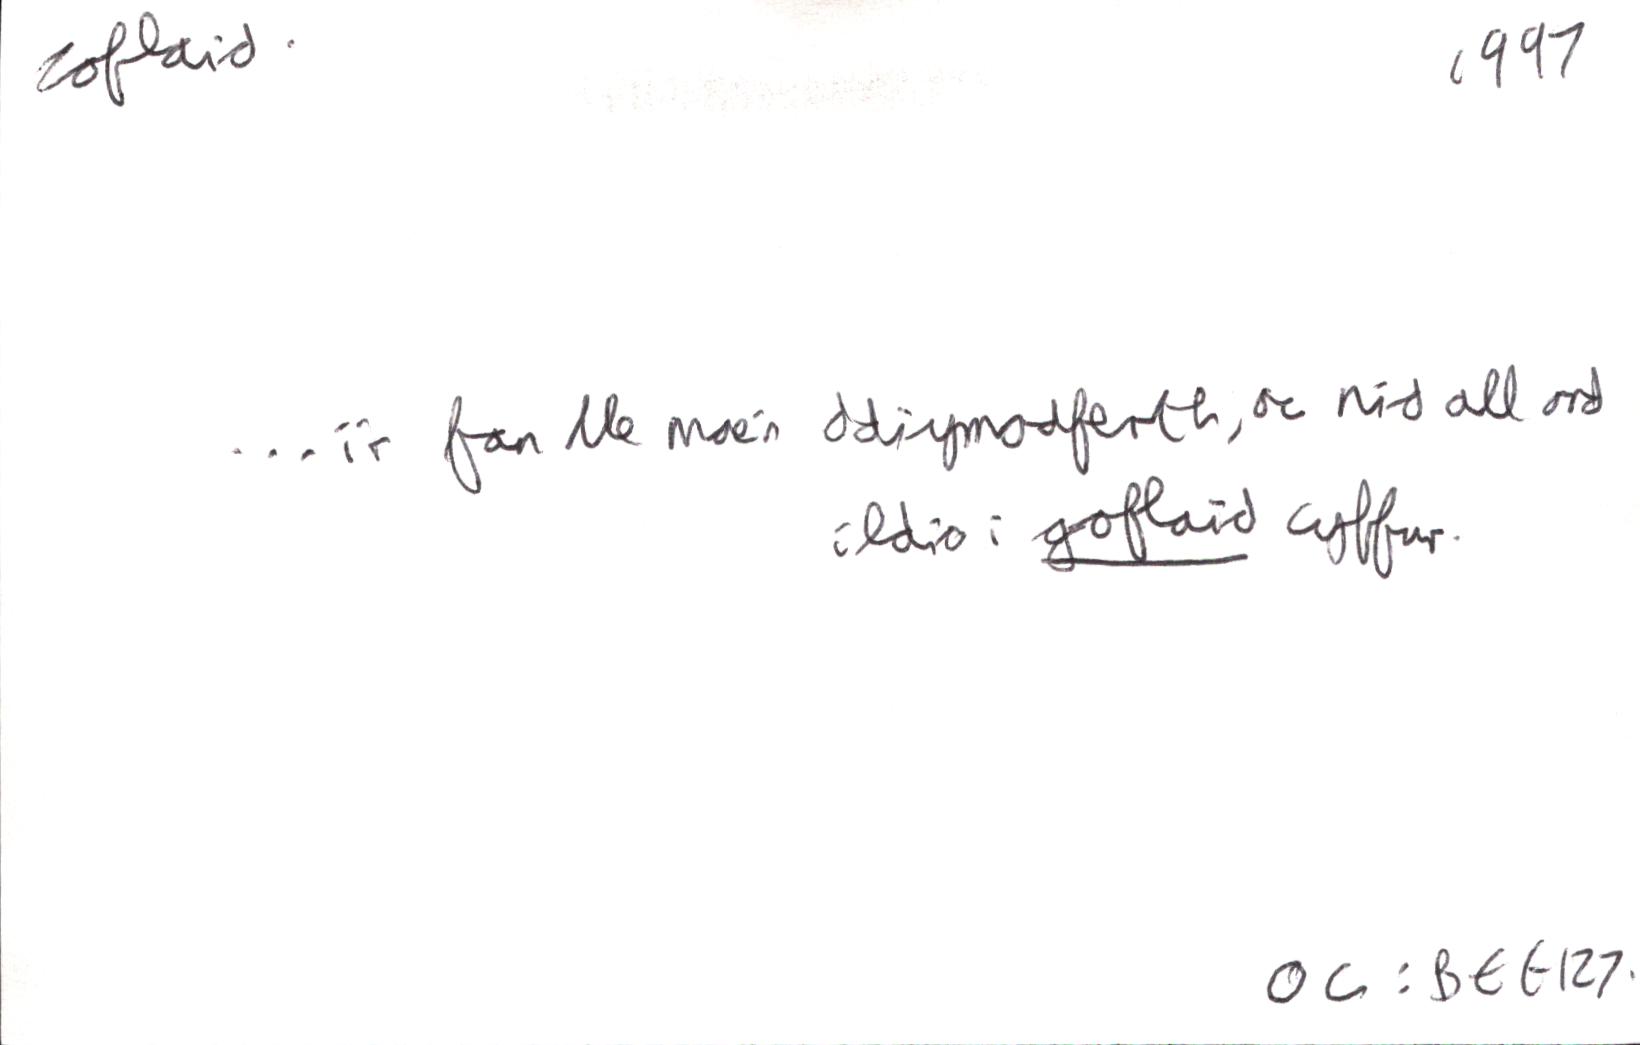 coflaid.
1997
...i'r fan lle mae'n ddiymadferth, ac nid all ond
ildio i goflaid cyffur.
OC: BEE 127.